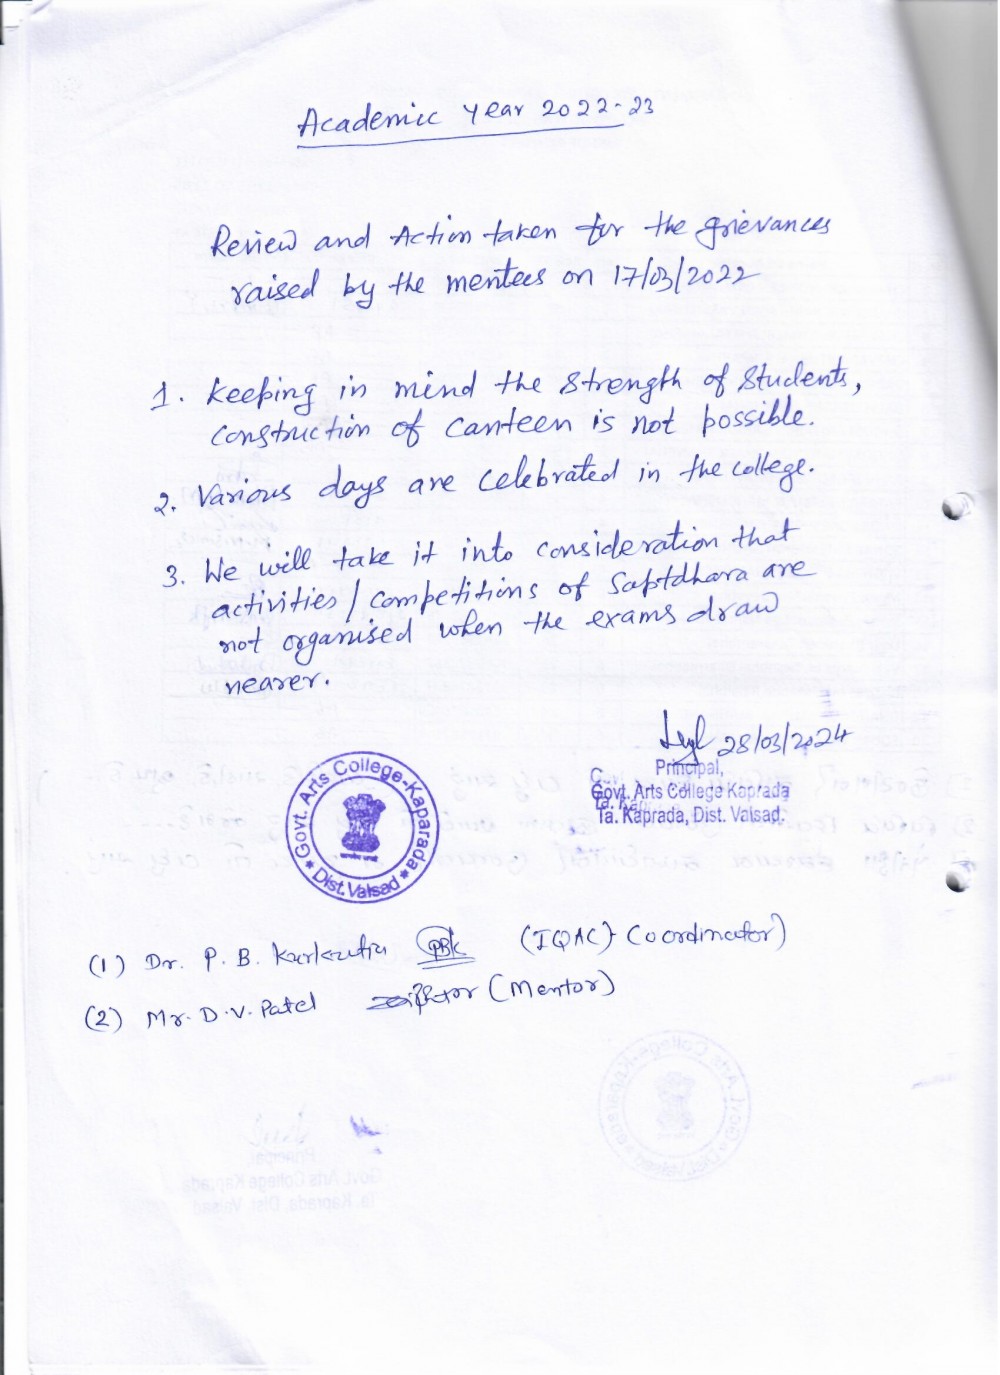 Academic Year 2022-23
Review and Action taken for the grievances
raised by the mentees on 17/03/2022
1. Keeping in mind the strength of students,
construction of canteen is not possible.
2. Various days are celebrated in the college.
3. We will take it into consideration that
activities / competitions of Saptdhara are
not organised when the exams draw
nearer.
28/03/2024
Principal,
Govt. Arts College Kaprada
Ta. Kaprada, Dist. Valsad.
Govt. Arts College-Kaparada
Dist. Valsad
(1) Dr. P. B. PBK (IQAC) Coordinator)
(2) Mr. D. V. Patel (Mentor)